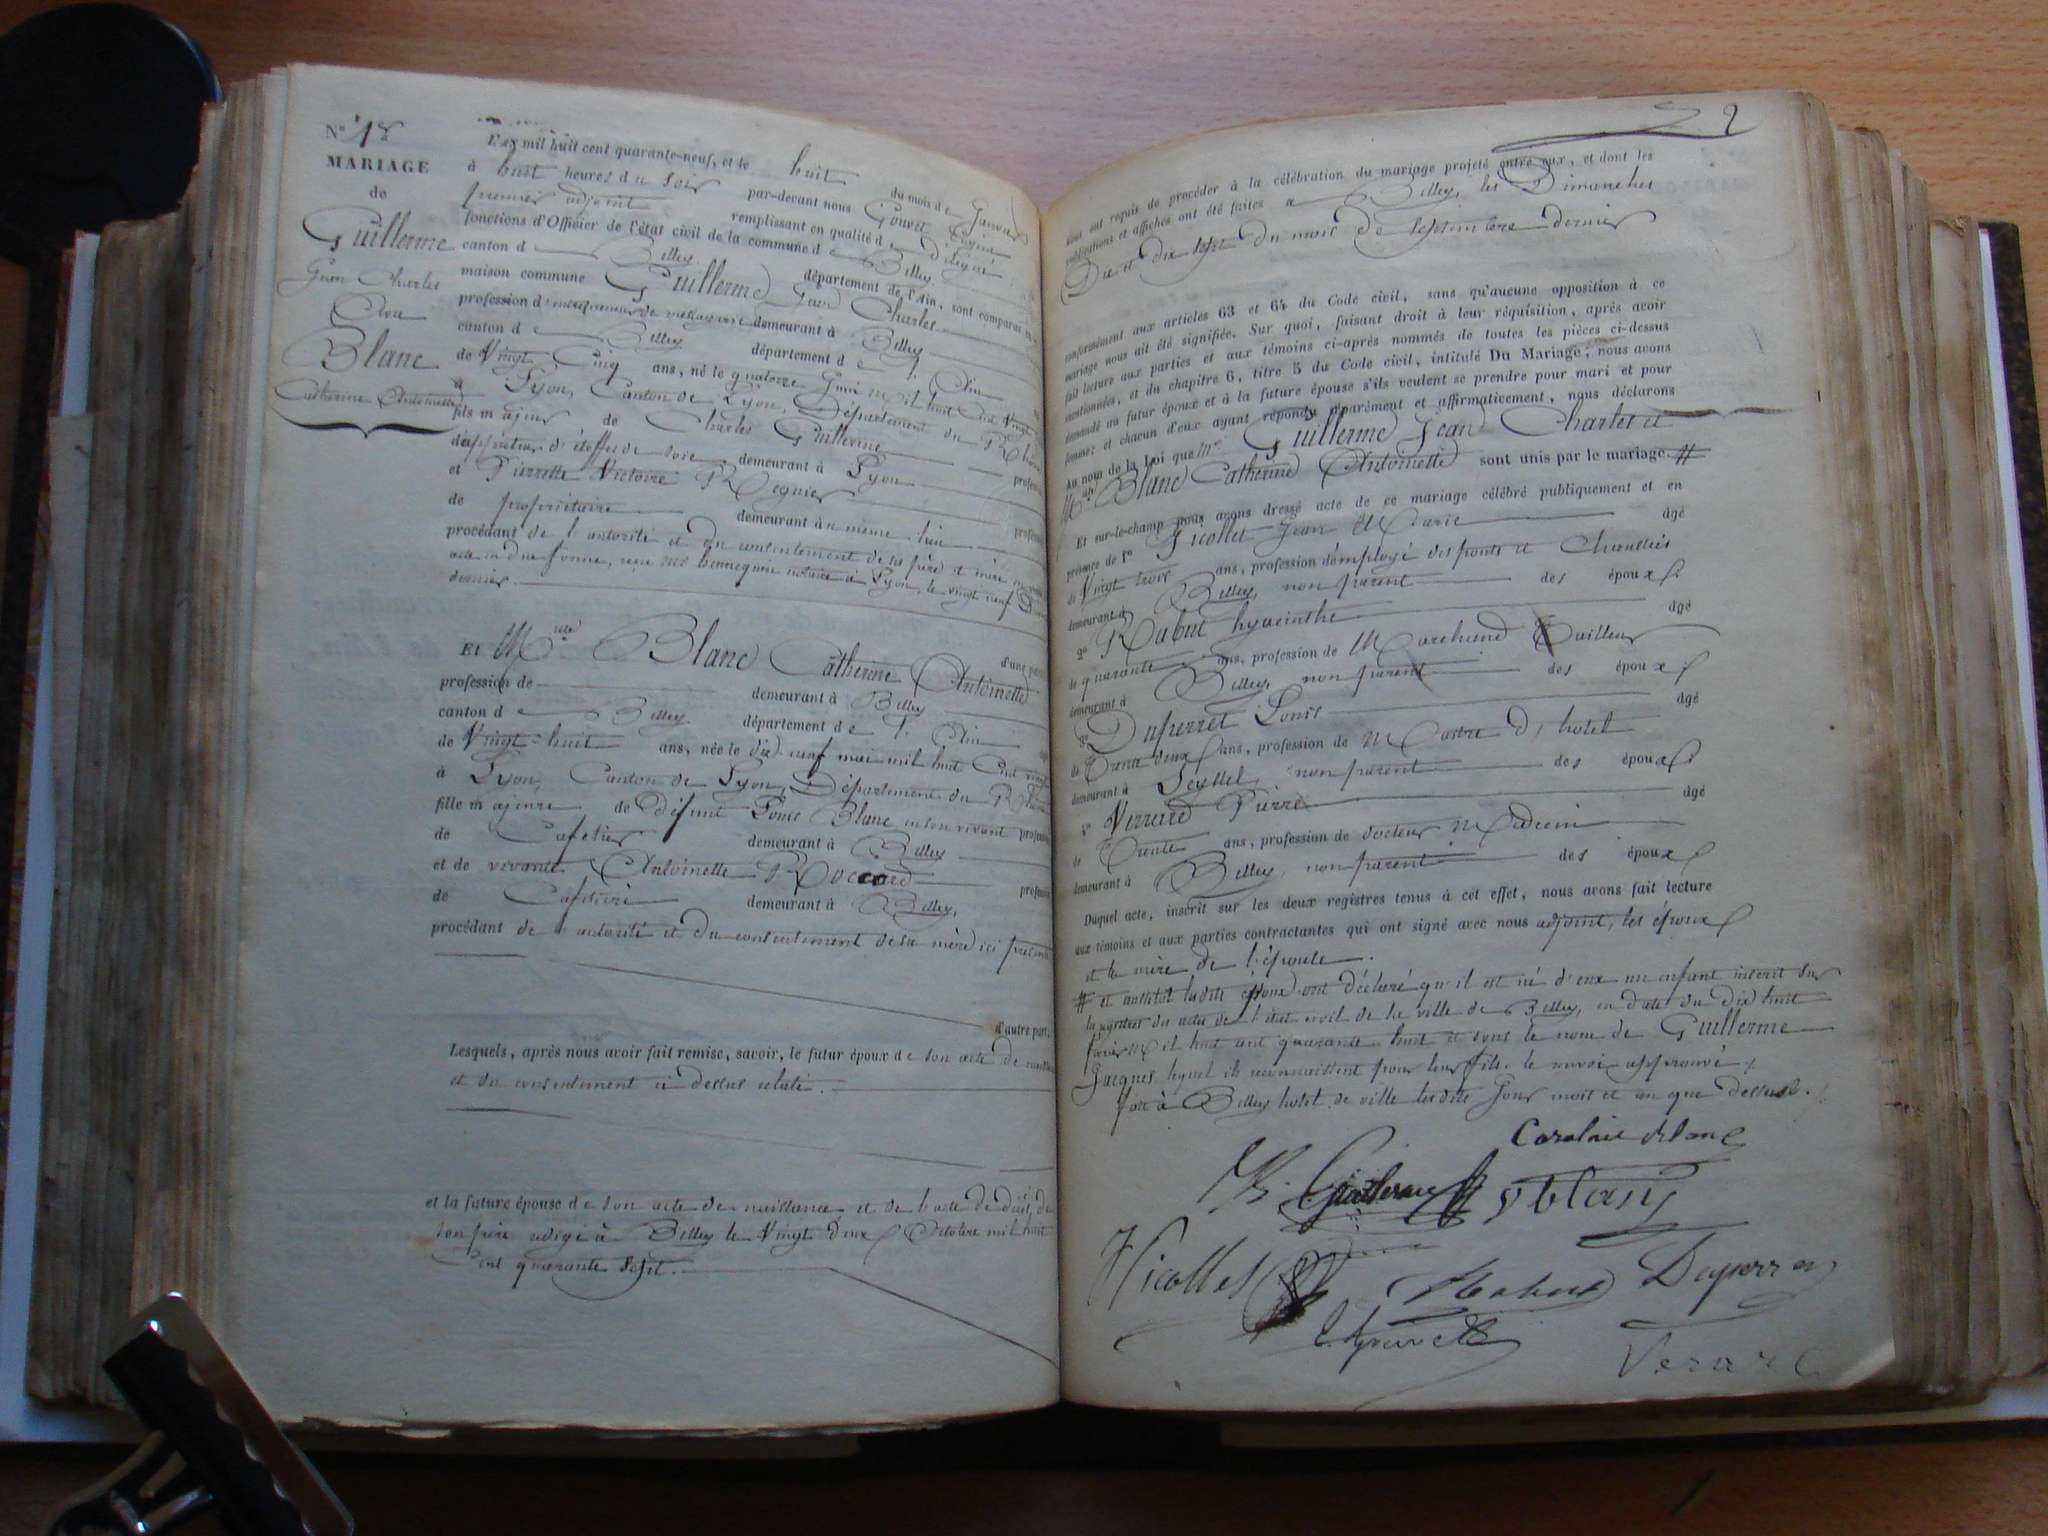 N° 1er
MARIAGE
de
Guillerme
Jean Charles
Et
Blanc
Catherine Antoinette
L'an mil huit cent quarante-neuf, et le huit du mois de Janvier
à huit heures du soir par-devant nous Gouvet Eugène
premier adjoint remplissant en qualité de délégué
fonctions d'Officier de l'état civil de la commune de Belley
canton de Belley département de l'Ain, sont comparus
maison commune Guillerme Jean Charles
profession d'entrepreneur de messageries demeurant à Belley
canton de Belley département de l'Ain
de Vingt Cinq ans, né le quatorze mil huit Cent Vingt
à Lyon, Canton de Lyon, Département du Rhône
fils majeur de Charles Guillerme
d'appréteur d'étoffes de soie demeurant à Lyon
et Pierrette Victoire Regnier profession
de propriétaire demeurant à même lieu
procédant de l'autorité et du consentement de ses père et mère
acte en due forme, reçu Me notaire à Lyon, le vingt neuf
dernier.
d'une part
Et Mlle Blanc Catherine Antoinette
profession de demeurant à Belley
canton de Belley département de l'Ain
de Vingt-huit ans, née le dix-neuf mai mil huit Cent vingt
à Lyon, Canton de Lyon, Département du Rhône
fille majeure de défunt Louis Blanc en son vivant profession
de Cafetier demeurant à Belley
et de vivante Antoinette profession
de Cafetière demeurant à Belley,
procédant de l'autorité et du consentement de sa mère ici présente
d'autre part.
Lesquels, après nous avoir fait remise, savoir, le futur époux de son acte de naissance
et du consentement ci dessus relaté.
et la future épouse de son acte de naissance et de l'acte de décès de
son père rédigé à Belley le Vingt deux Octobre mil huit
Cent quarante Sept.
2
Nous ont requis de procéder à la célébration du mariage projeté entre eux, et dont les
publications et affiches ont été faites à Belley, les Dimanches
Dix et dix sept du mois de septembre dernier
conformément aux articles 63 et 64 du Code civil, sans qu'aucune opposition à ce
mariage nous ait été signifiée. Sur quoi, faisant droit à leur réquisition, après avoir
fait lecture aux parties et aux témoins ci-après nommés de toutes les pièces ci-dessus
mentionnées, et du chapitre 6, titre 5 du Code civil, intitulé Du Mariage, nous avons
demandé au futur époux et à la future épouse s'ils veulent se prendre pour mari et pour
femme; et chacun d'eux ayant répondu séparément et affirmativement, nous déclarons
au nom de la Loi que Mr Guillerme Jean Charles et
Mlle Blanc Catherine Antoinette sont unis par le mariage. #
Et sur-le-champ nous avons dressé acte de ce mariage célébré publiquement et en
présence de 1° Nicollet Jean Marie âgé
de Vingt trois ans, profession d'employé des ponts et Chaussées
demeurant à Belley, non parent des époux
2° Rabut hyacinthe âgé
de quarante ans, profession de Marchand Tailleur
demeurant à Belley, non parent des époux
3° Duperret Louis âgé
de Trente deux ans, profession de Maitre d'hotel
demeurant à Seyssel, non parent des époux
4° Verrard Pierre âgé
de Trente ans, profession de docteur Médecin
demeurant à Belley, non parent des époux
Duquel acte, inscrit sur les deux registres tenus à cet effet, nous avons fait lecture
aux témoins et aux parties contractantes qui ont signé avec nous adjoint, les époux
et la mère de l'épouse.
# et aussitôt lesdits époux ont déclaré qu'il est né d'eux un enfant inscrit sur
les registres des actes de l'état civil de la ville de Belley, en date du dix huit
mil huit cent quarante huit et sous le nom de Guillerme
Jacques lequel ils reconnaissent pour leur fils. le renvoi approuvé
fait à Belley hotel de ville lesdits Jour mois et an que dessus.
Guillerme
Blanc
Nicollet
Rabut
Duperret